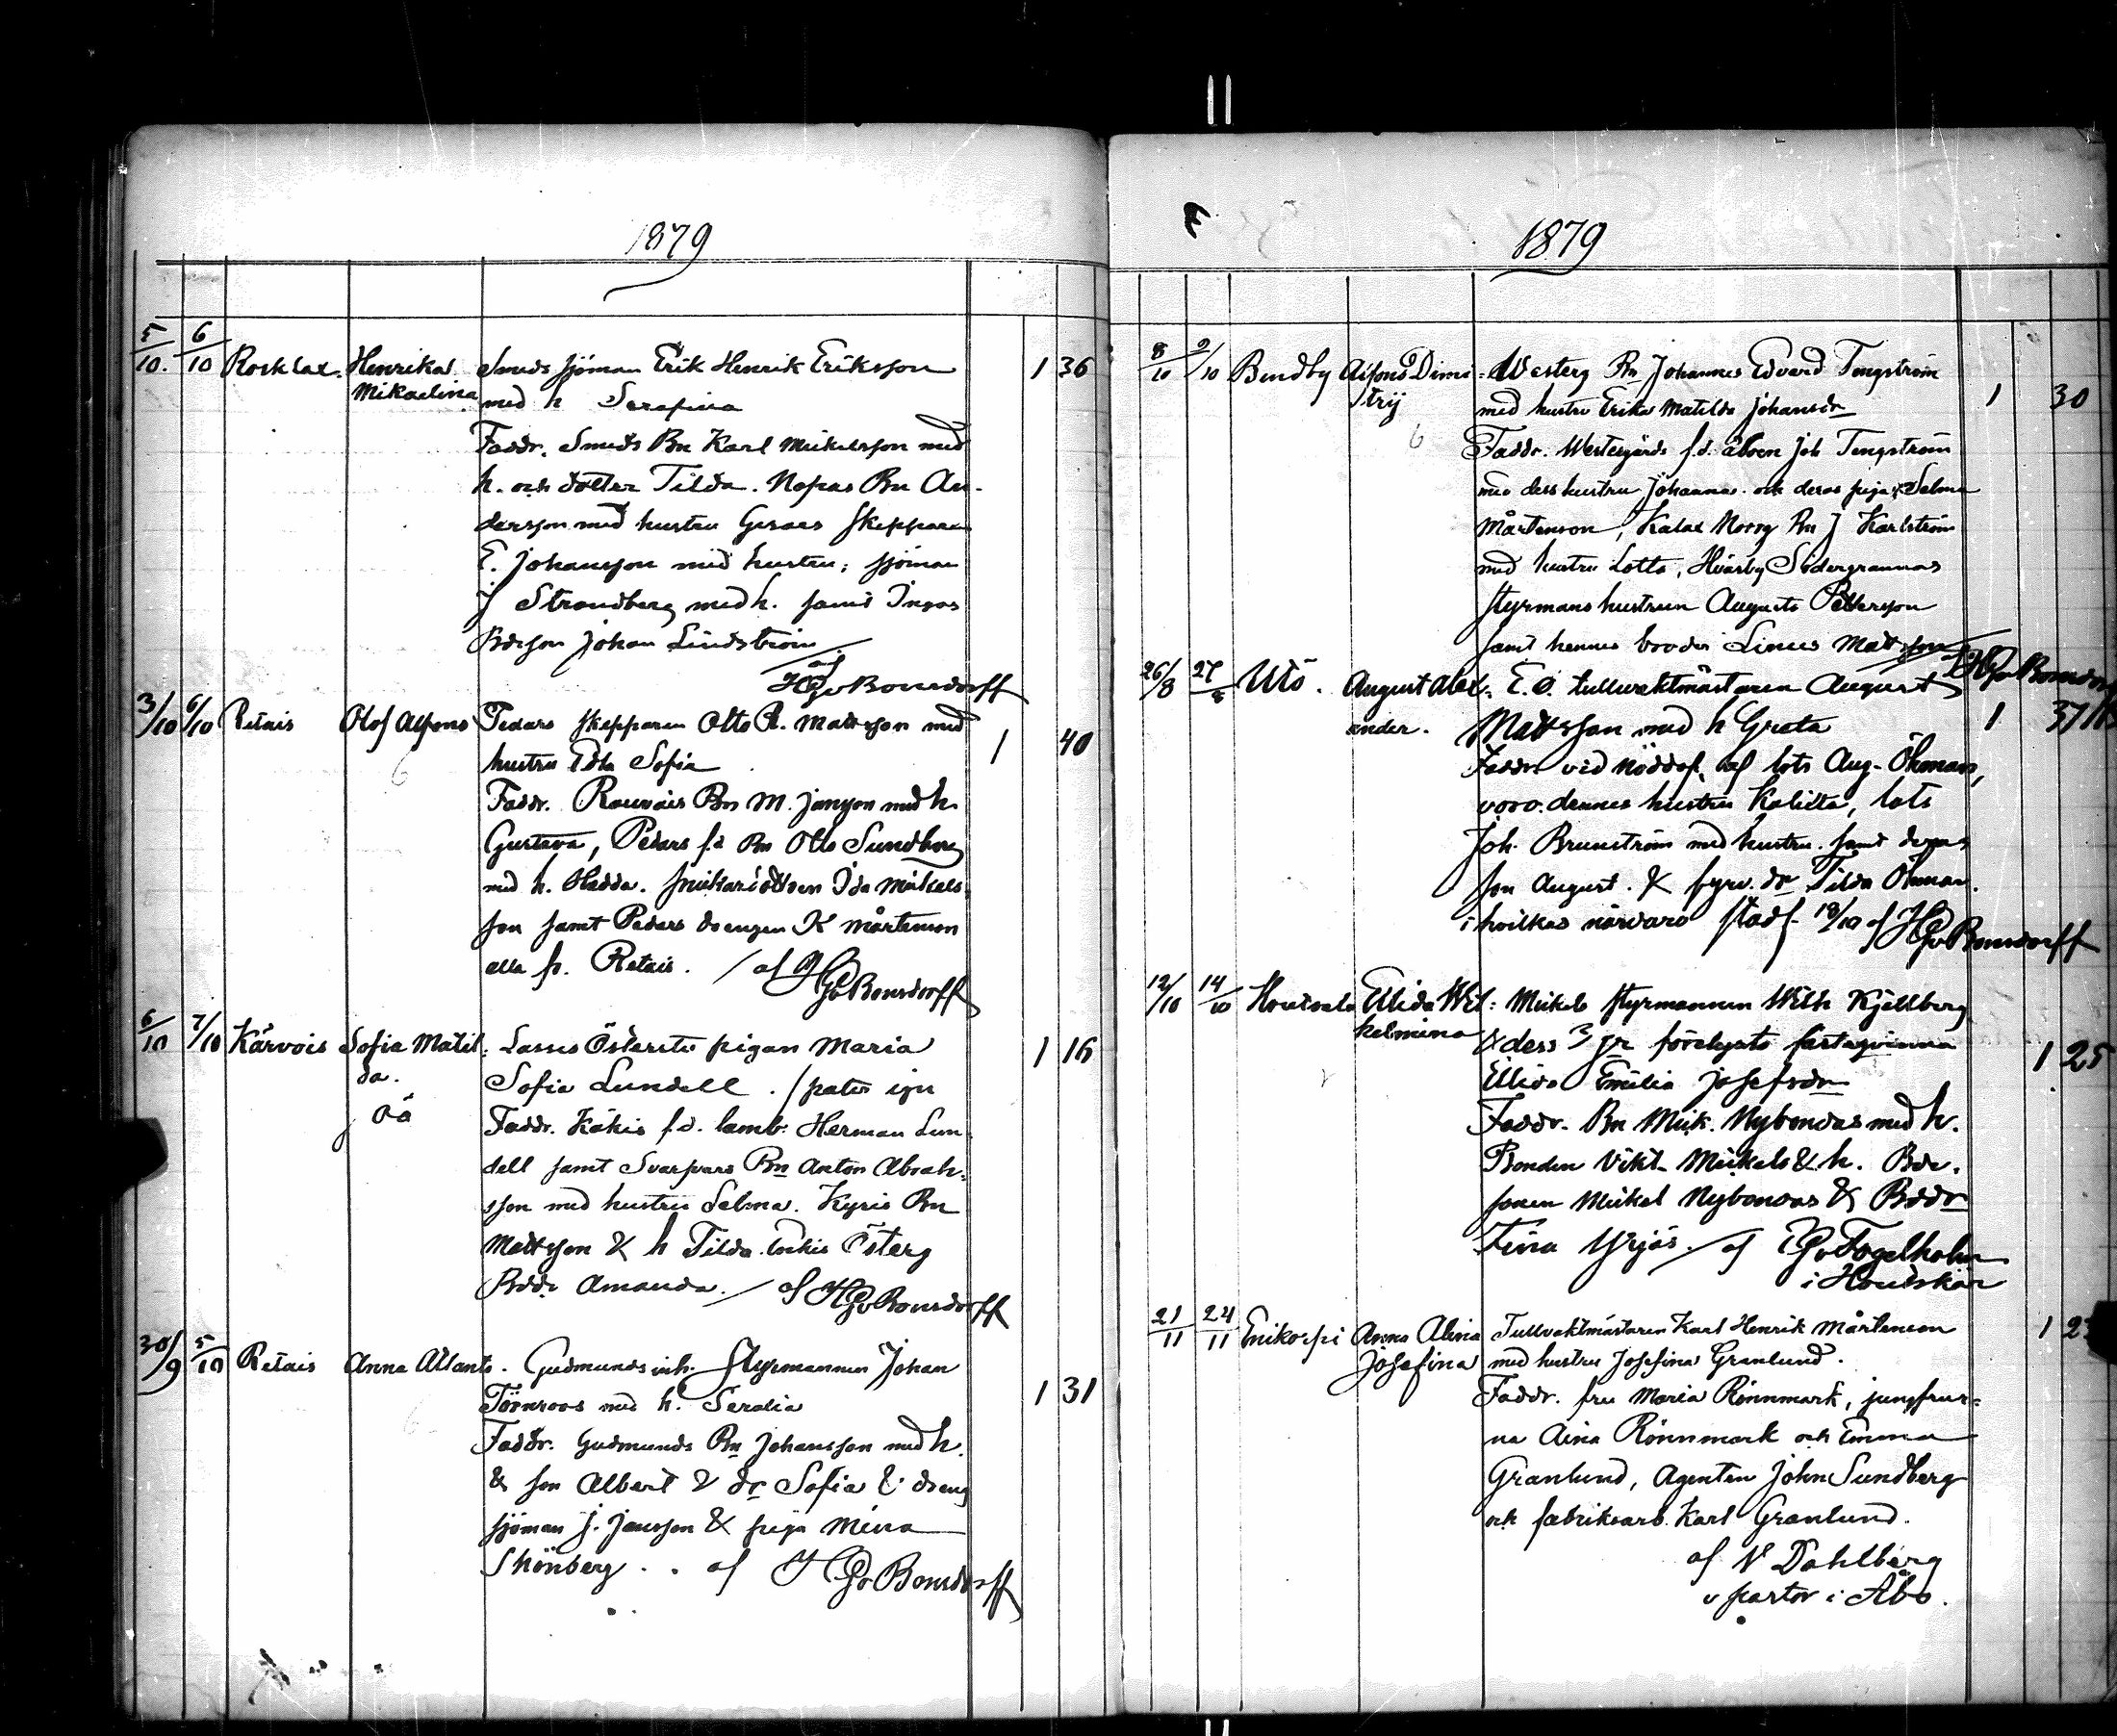 1879
5/10. 6/10 Rosklax. Henrika Smeds sjöman Erik Henrik Eriksson 1 36
Mikaelina med h Serafina
Faddr. Smeds Bn Karl Mickelsson med
h. och dotter Tilda. Nopas Bn An-
dersson med hustru Skepparen
E. Johansson med hustru; sjöman
J Strandberg med h. samt
Bdeson Johan Lindström
af
HGvBonsdorff
3/10 6/10 Retais Olof Alfons Pedars skepparen Otto R. Mattsson med 1 40
hustru Edla Sofia
6
Faddr. Bn M. Jansson med h.
Gustava, Pedars f.d Bn Otto Sundberg
med h. Hedda. Ida Mickels-
son samt Pedars drengen K Mårtenson
alla fr. Retais. / af
HGvBonsdorff
6/10 7/10 Kärvois Sofia Matil: Lasses Österstu pigan Maria 1 16
da. Sofia Lundell. / pater ign
Oä
Faddr. Käkis f.d. lamb. Herman Lun-
dell samt Svarfvars Bn Anton Abrah:
sson med hustru Selma. Kyris Bn
Mattsson & h Tilda. Österg
Bddr Amanda. / af HGvBonsdorff
30/9 5/10 Retais Anna Atlanta. Gudmunds inh. Styrmannen Johan 1 31
Törnroos med h. Seralia
6
Faddr. Gudmunds Bn Johansson med h.
& son Albert & dr Sofia & dreng
sjöman J. Jansson & piga Mina
Skönberg.. af HGvBonsdorff
1879
8/10 9/10 Bendby Alfons Dimi: Westerg Bn Johannes Edvard Tengström 1 30
trij med hustru Erika Matilda Johansdr
6
Faddr. Westergårds f.d. åboen Joh Tengström
med dess hustru Johanna. och deras piga Selma
Mårtenson, Kalax Norrg Bn J Karlström
med hustru Lotta, Hvarby Södergrannas
styrmans hustrun Augusta Pettersson
samt hennes broder Linus Mattsson
HGvBonsdorff
26/8 27/8 Utö. August Alex: E.O. tullvaktmästaren August 1 37
ander. Mattsson med h Greta
Faddr. vid nöddop, af lots Aug. Öhman,
voro. dennes hustru, lots
Joh. Brunström med hustru. samt deras
son August. & fyrv. dr Tilda Öhman.
i hvilkas närvaro stadf. 18/10 af HGvBonsdorff
12/10 14/10 Ellida Wil: Mickels styrmannen Wilh Kjellberg
helmina & dess 3 gr förelysta fästeqvinna 1 25
Ellida Emilia Josefsdr
Faddr. Bn Mick. Nybondas med h.
Bonden Vikt. Mickels & h. Bde.
sonen Mickel Nybondas & Bddr
Fina Yrjäs. / af GvFogelholm
i Houtskär
21/11 24/11 Enikorpi Anna Alina Tullvaktmästaren Karl Henrik Mårtenson 1
Josefina med hustru Josefina Granlund.
Faddr. fru Maria Rönnmark, jungfrur-
na Aina Rönnmark och Emma
Granlund, Agenten John Sundberg
och fabriksarb. Karl Granlund.
af N Dahlberg
v pastor i Åbo.